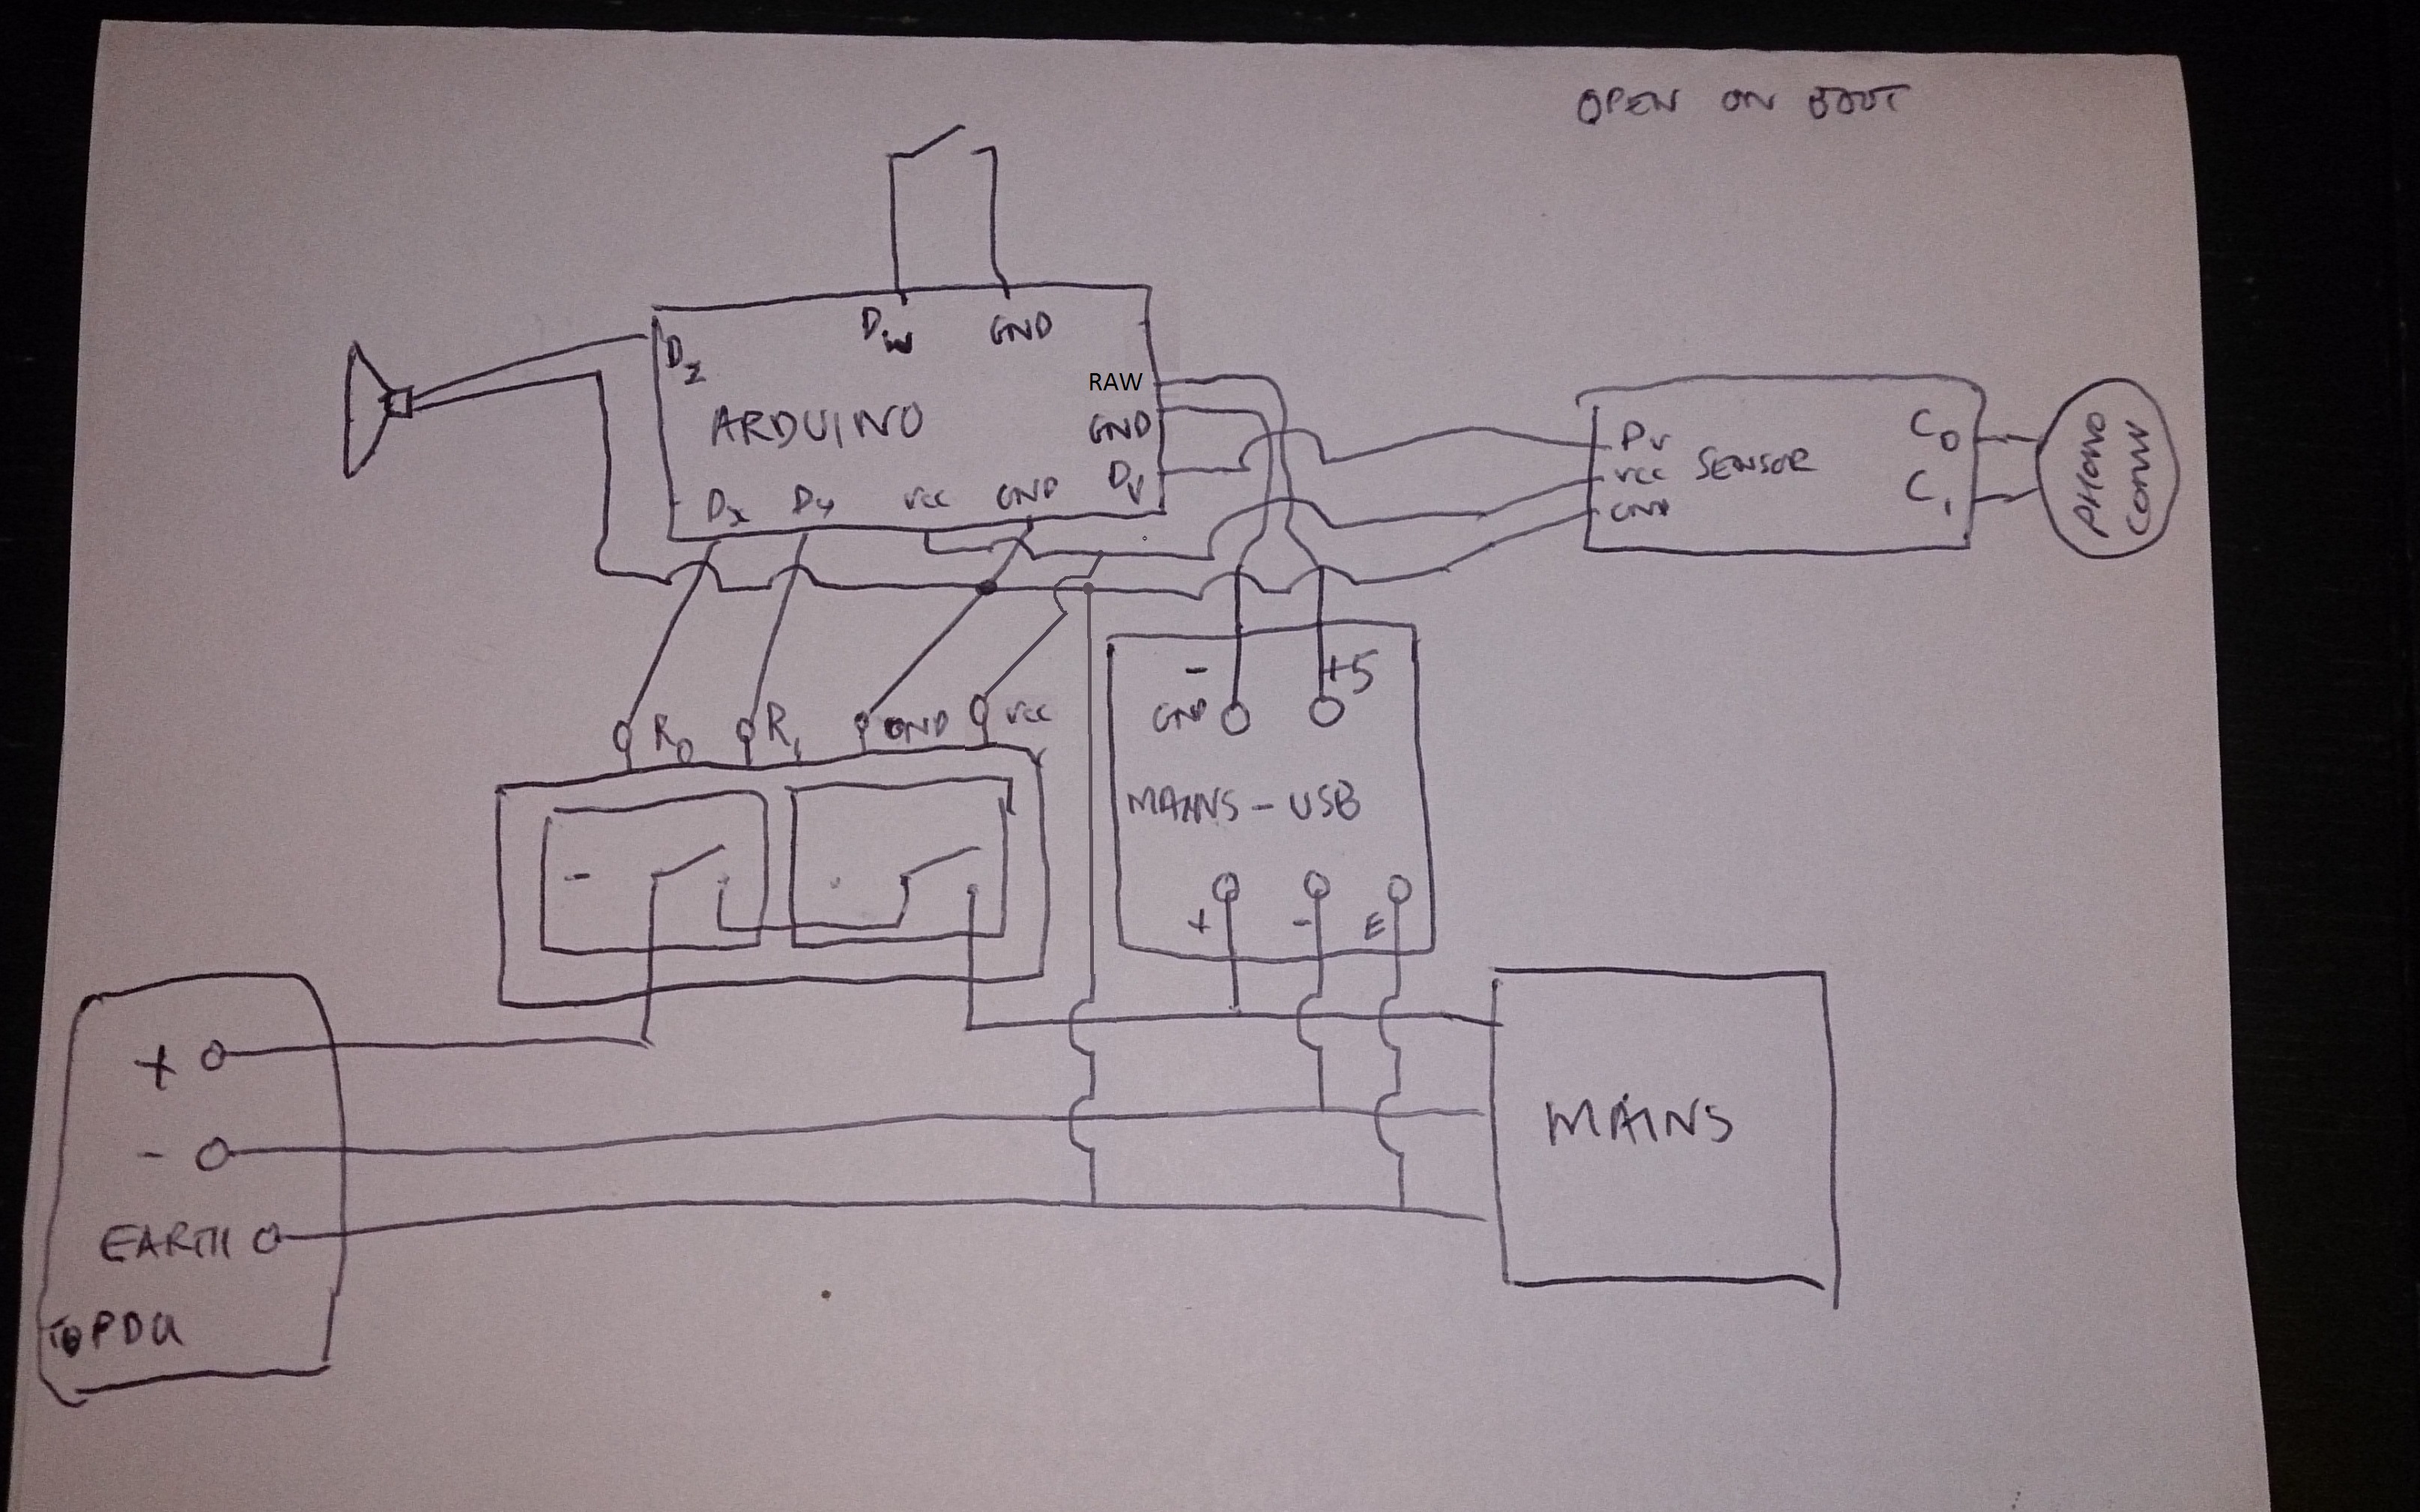 OPEN ON BOOT
Dz
Dw
GND
RAW
ARDUINO
GND
Dv
Dx
Dy
VCC
GND
Pv
VCC
GND
SENSOR
C0
C1
PHONO
CONN
R0
R1
GND
VCC
-
+5
GND
MAINS - USB
+
-
E
-
+
-
EARTH
TO PDU
MAINS